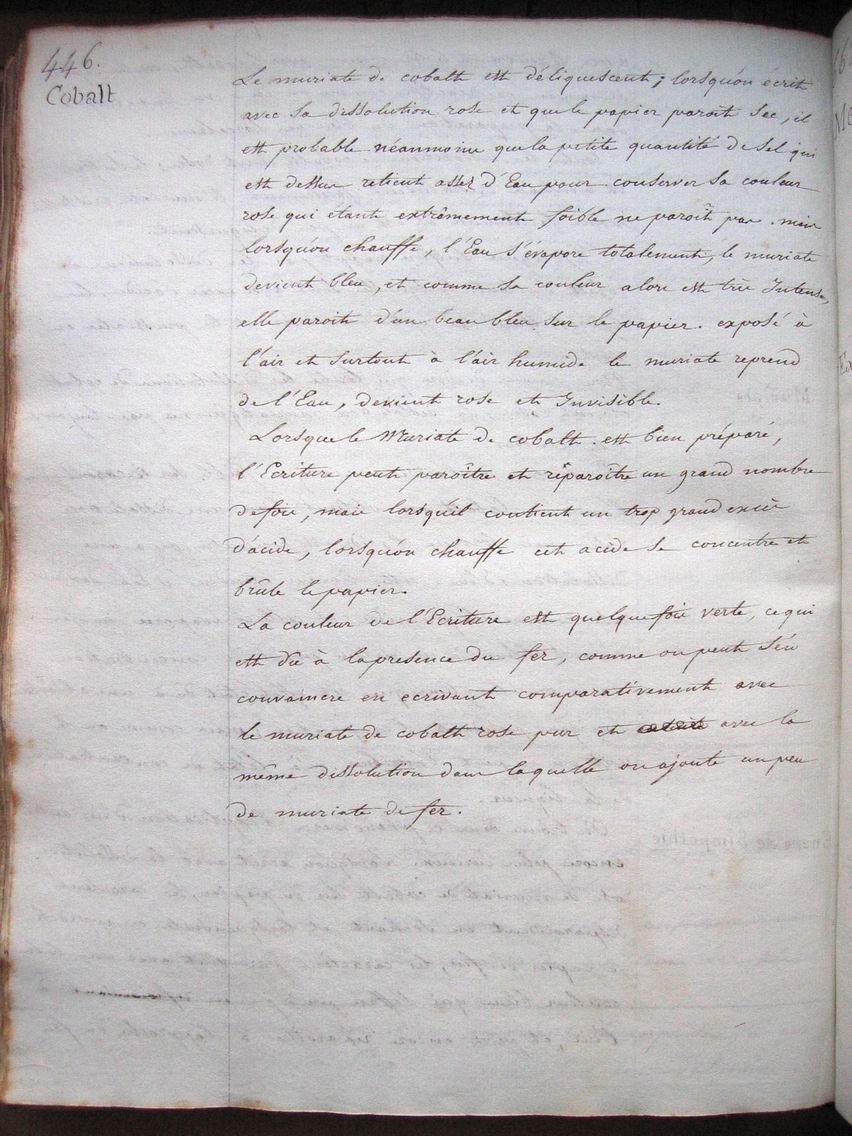 446.
Cobalt
Le muriate de cobalt est déliquescent; lorsqu'on écrit
avec sa dissolution rose et que le papier paroit sec, il
est probable néanmoins que la petite quantité de sel qui
est dessus retient assez d'Eau pour conserver sa couleur
rose qui étant extrêmement foible ne paroît pas. mais
lorsqu'on chauffe, l'Eau s'évapore totalement, le muriate
devient bleu, et comme sa couleur alors est très Intense,
elle paroit d'un beau bleu sur le papier. exposé à
l'air et surtout à l'air humide le muriate reprend
de l'Eau, devient rose et Invisible.
Lorsque le Muriate de cobalt est bien préparé,
l'Ecriture peut paroître et réparoître un grand nombre
de fois, mais lorsqu'il contient un trop grand excès
d'acide, lorsqu'on chauffe cet acide se concentre et
brûle le papier.
La couleur de l'Ecriture est quelquefois verte, ce qui
est dû à la presence du fer, comme on peut s'en
convaincre en ecrivant comparativement avec
le muriate de cobalt rose pur et avec la
même dissolution dans laquelle on ajoute un peu
de muriate de fer.